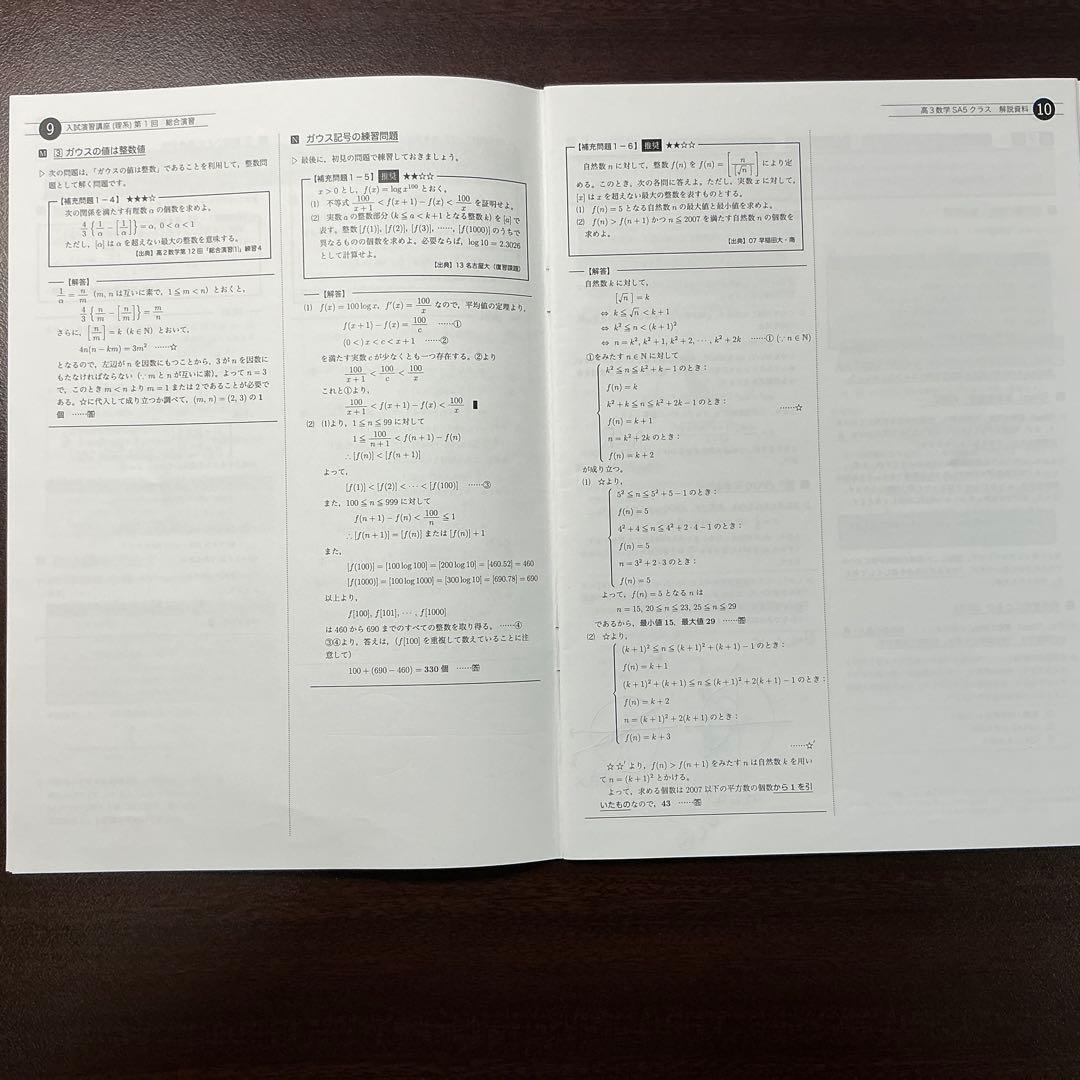 9 入試演習講座(理系)第1回 総合演習
M 3 ガウスの値は整数値
▷ 次の問題は,「ガウスの値は整数」であることを利用して,整数問
題として解く問題です。
【補充問題1-4】★★★☆
次の関係を満たす有理数αの個数を求めよ。
4/3{1/α-[1/α]}=α, 0<α<1
ただし,[α]はαを超えない最大の整数を意味する。
【出典】高2数学第12回「総合演習①」練習4
【解答】
1/α=n/m (m, nは互いに素で,1≦m<n) とおくと,
4/3{n/m-[n/m]}=m/n
さらに,[n/m]=k (k∈N) とおいて,
4n(n-km)=3m² ……☆
となるので,左辺がnを因数にもつことから,3がnを因数に
もたなければならない (∵mとnが互いに素)。よってn=3
で,このときm<nよりm=1または2であることが必要で
ある。☆に代入して成り立つか調べて,(m, n)=(2, 3)の1
個 ……答
N ガウス記号の練習問題
▷ 最後に,初見の問題で練習しておきましょう。
【補充問題1-5】推奨 ★★☆☆
x>0とし,f(x)=log x¹⁰⁰とおく。
(1) 不等式 100/(x+1)<f(x+1)-f(x)<100/x を証明せよ。
(2) 実数aの整数部分(k≦a<k+1となる整数k)を[a]で
表す。整数[f(1)], [f(2)], [f(3)], ……, [f(1000)]のうちで
異なるものの個数を求めよ。必要ならば,log10=2.3026
として計算せよ。
【出典】13 名古屋大(復習課題)
【解答】
(1) f(x)=100 log x, f′(x)=100/x なので,平均値の定理より,
f(x+1)-f(x)=100/c ……①
(0<)x<c<x+1 ……②
を満たす実数cが少なくとも一つ存在する。②より
100/(x+1)<100/c<100/x
これと①より,
100/(x+1)<f(x+1)-f(x)<100/x ▮
(2) (1)より,1≦n≦99に対して
1≦100/(n+1)<f(n+1)-f(n)
∴[f(n)]<[f(n+1)]
よって,
[f(1)]<[f(2)]<…<[f(100)] ……③
また,100≦n≦999に対して
f(n+1)-f(n)<100/n≦1
∴[f(n+1)]=[f(n)]または[f(n)]+1
また,
[f(100)]=[100 log 100]=[200 log 10]=[460.52]=460
[f(1000)]=[100 log 1000]=[300 log 10]=[690.78]=690
以上より,
f[100], f[101], …, f[1000]
は460から690までのすべての整数を取り得る。……④
③④より,答えは,(f[100]を重複して数えていることに注
意して)
100+(690-460)=330個 ……答
高3数学SA5クラス 解説資料 10
【補充問題1-6】推奨 ★★☆☆
自然数nに対して,整数f(n)をf(n)=[n/[√n]]により定
める。このとき,次の各問に答えよ。ただし,実数xに対して,
[x]はxを超えない最大の整数を表すものとする。
(1) f(n)=5となる自然数nの最大値と最小値を求めよ。
(2) f(n)>f(n+1)かつn≦2007を満たす自然数nの個数を
求めよ。
【出典】07 早稲田大・商
【解答】
自然数kに対して,
[√n]=k
⇔ k≦√n<k+1
⇔ k²≦n<(k+1)²
⇔ n=k², k²+1, k²+2, …, k²+2k ……① (∵n∈N)
①をみたすn∈Nに対して
k²≦n≦k²+k-1のとき:
f(n)=k
k²+k≦n≦k²+2k-1のとき:
f(n)=k+1
……☆
n=k²+2kのとき:
f(n)=k+2
が成り立つ。
(1) ☆より,
5²≦n≦5²+5-1のとき:
f(n)=5
4²+4≦n≦4²+2·4-1のとき:
f(n)=5
n=3²+2·3のとき:
f(n)=5
よって,f(n)=5となるnは
n=15, 20≦n≦23, 25≦n≦29
であるから,最小値15,最大値29 ……答
(2) ☆より,
(k+1)²≦n≦(k+1)²+(k+1)-1のとき:
f(n)=k+1
(k+1)²+(k+1)≦n≦(k+1)²+2(k+1)-1のとき:
f(n)=k+2
n=(k+1)²+2(k+1)のとき:
f(n)=k+3
……☆′
☆☆′より,f(n)>f(n+1)をみたすnは自然数kを用い
てn=(k+1)²とかける。
よって,求める個数は2007以下の平方数の個数から1を引
いたものなので,43 ……答